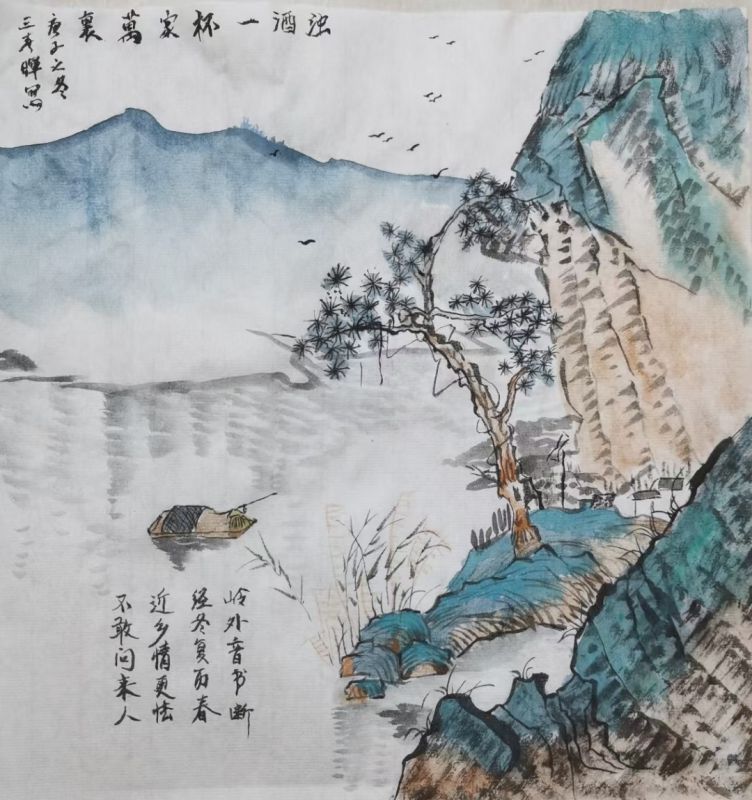 浊酒一杯家萬裏
庚子之冬
三
岭外音书断
经冬复历春
近乡情更怯
不敢问来人